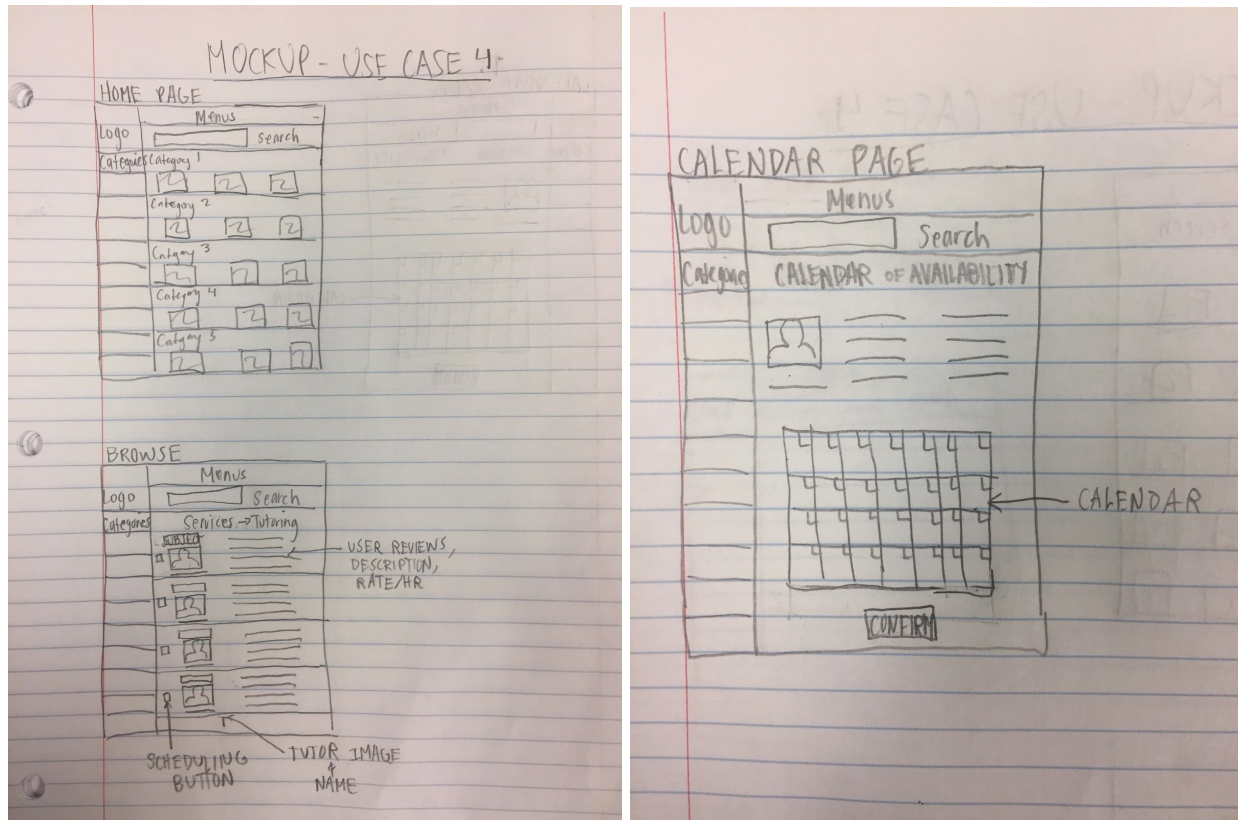 MOCKUP - USE CASE 4
HOME PAGE
Menus
Logo
Search
Categories
Category 1
Category 2
Category 3
Category 4
Category 5
BROWSE
Menus
Logo
Search
Categories
Services → Tutoring
SUBJECT
USER REVIEWS,
DESCRIPTION,
RATE/HR
SCHEDULING
BUTTON
TUTOR IMAGE
&
NAME
CALENDAR PAGE
Menus
Logo
Search
CALENDAR OF AVAILABILITY
CALENDAR
CONFIRM